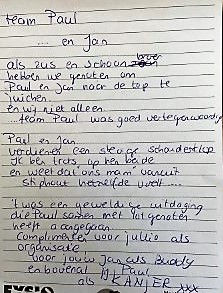 team Paul
.... en Jan
als zus en schoonbroer
hebben we genoten om
Paul en Jan naar de top te
juichen.
en wij niet alleen.
....team Paul was goed vertegenwoordigd
Paul en Jan
verdienen een stevige schouderklop
Ik ben trots op hen beide
en weet dat ons mam vanuit
Stiphout hetzelfde voelt ....
't was een geweldige uitdaging
die Paul samen met lotgenoten
heeft aangegaan.
Complimenten voor jullie als
organisatie
voor jouw Jan als Buddy
en bovenal bij Paul
als KANJER xxx